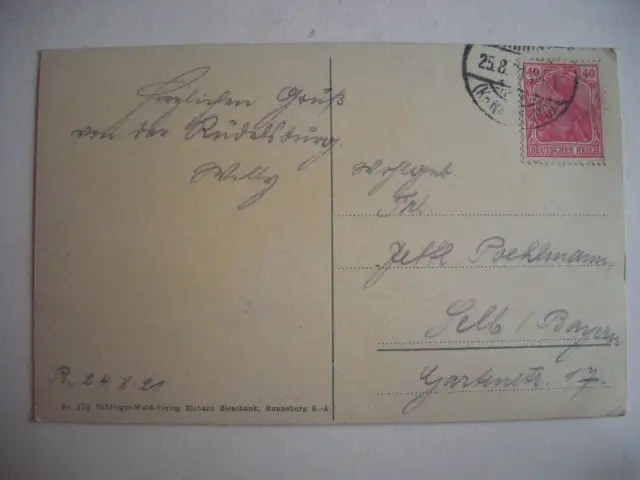 Herzlichen Gruß
von der Rudelsburg.
Willy
R, 24.8.21
Thüringer-Wald-Verlag Richard Zieschank, Ronneburg S.-A
25.8.
40 40
DEUTSCHES REICH
Wohlgeb.
Frl.
Poehlmann
Selb / Bayern
Gartenstr. 17.